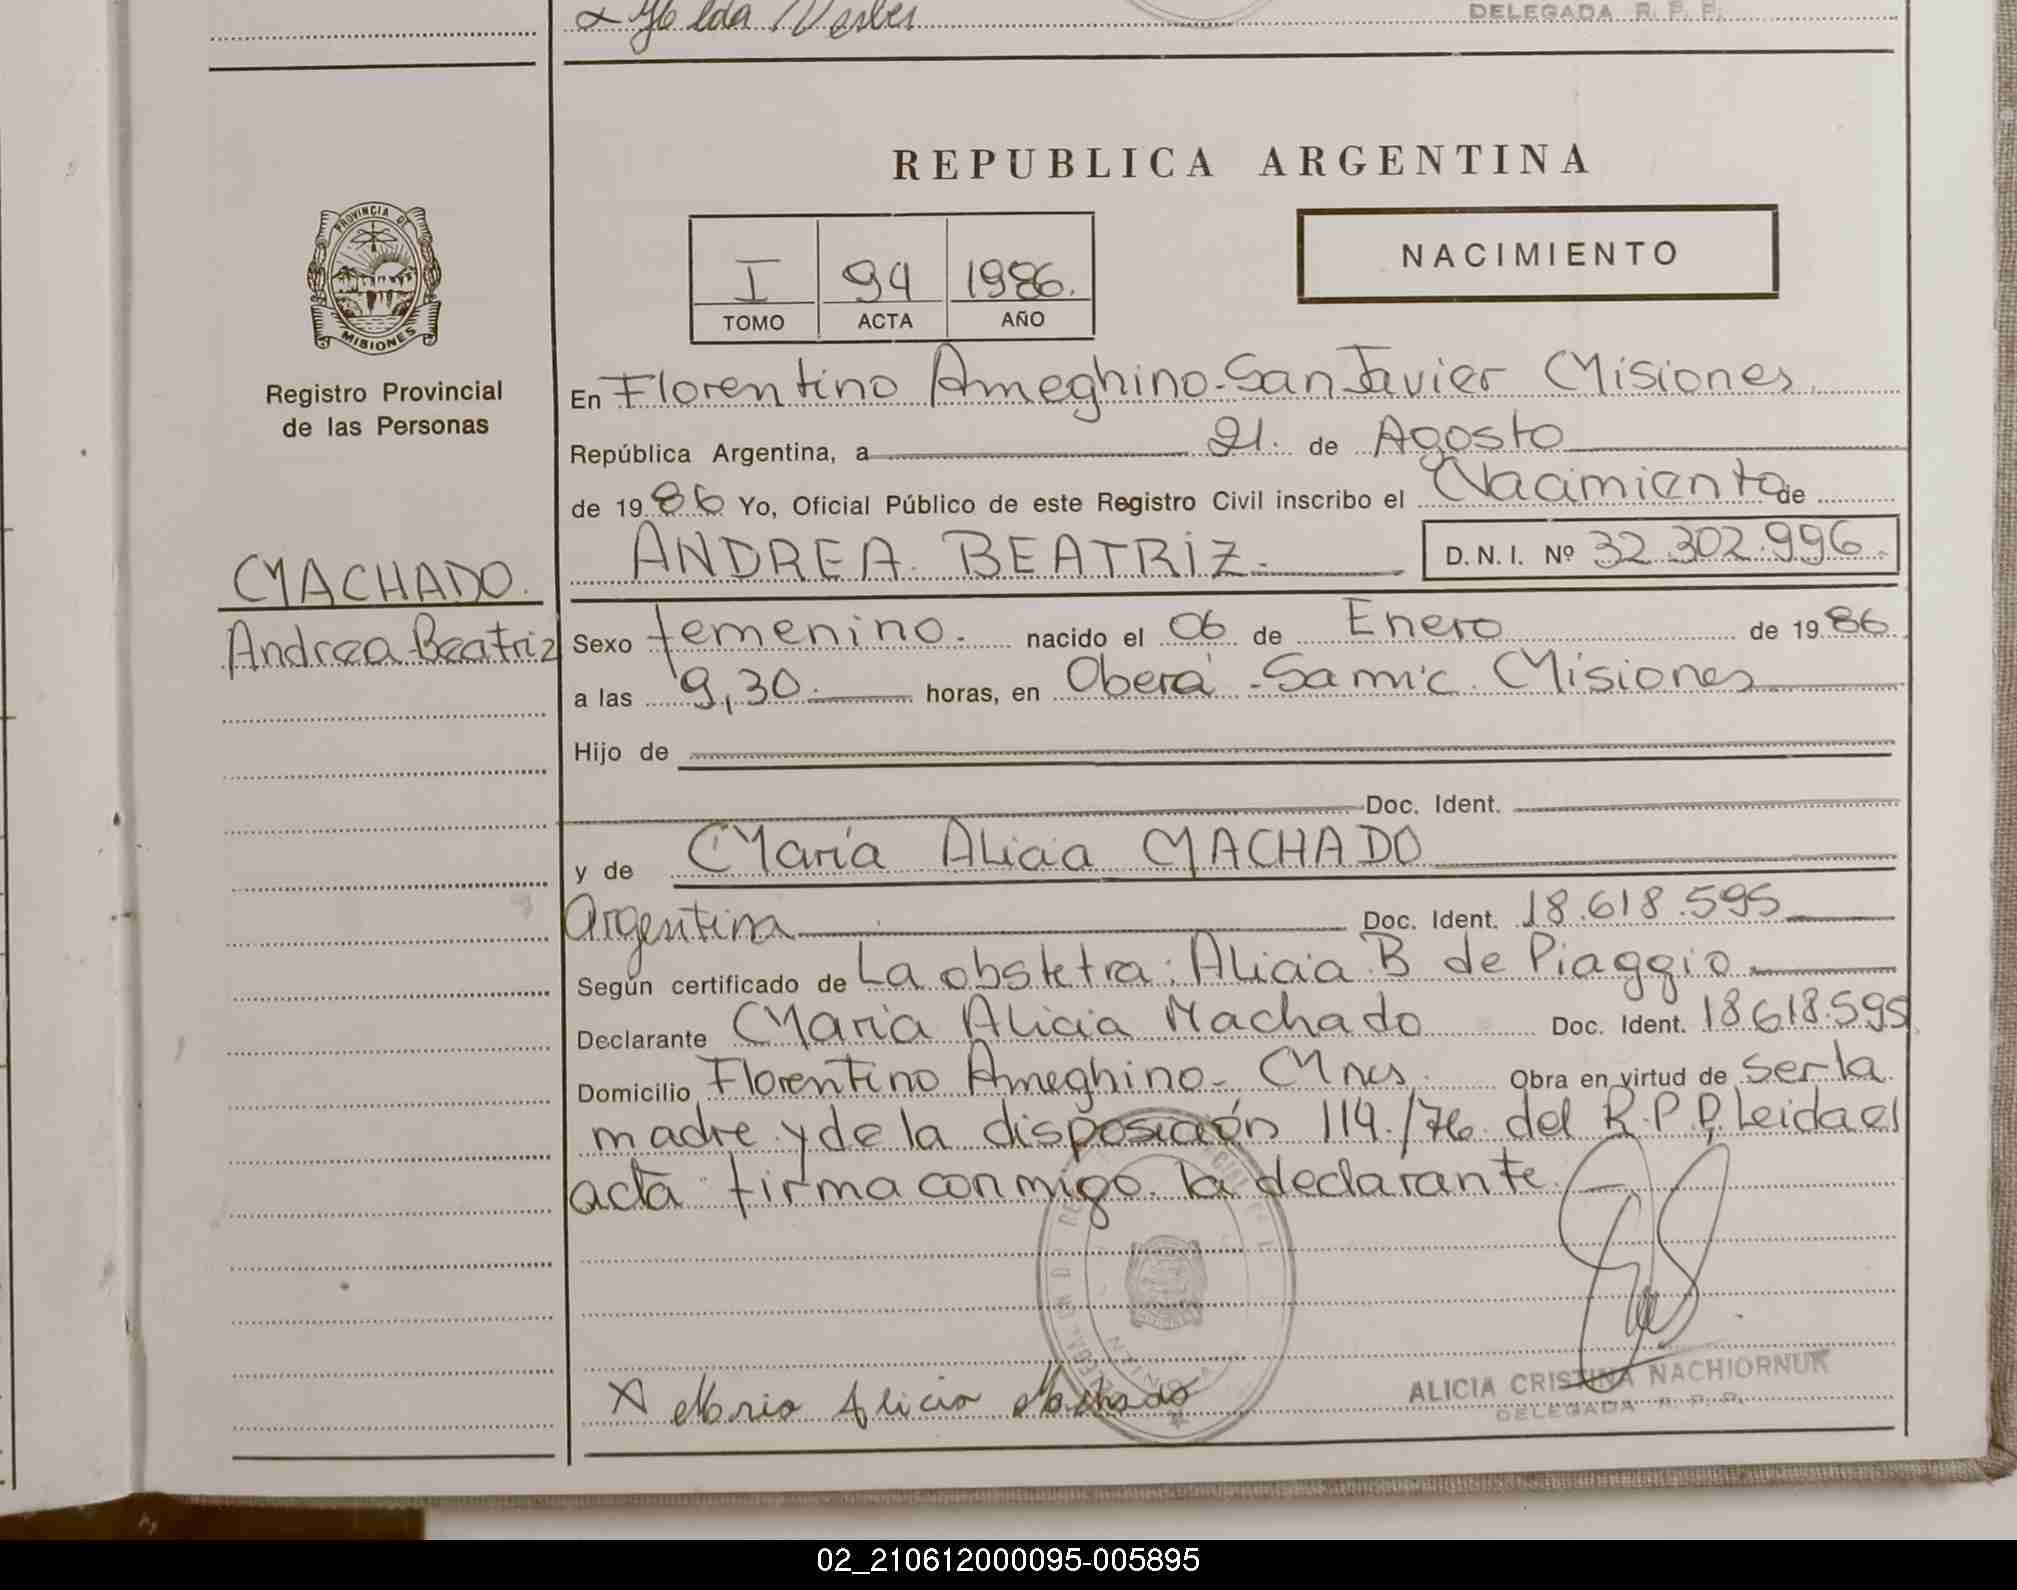 DELEGADA R. P. P.
REPUBLICA ARGENTINA
PROVINCIA DE
MISIONES
Registro Provincial
de las Personas
NACIMIENTO
I 94 1986.
TOMO ACTA AÑO
En Florentino Ameghino-San Javier Misiones
República Argentina, a 21. de Agosto
de 1986 Yo, Oficial Público de este Registro Civil inscribo el Nacimiento de
ANDREA BEATRIZ. D. N. I. Nº 32.302.996.
MACHADO.
Andrea Beatriz
Sexo femenino. nacido el 06 de Enero de 1986
a las 9,30. horas, en Oberá - Samic. Misiones
Hijo de
Doc. Ident.
y de María Alicia MACHADO
Argentina Doc. Ident. 18.618.595
Según certificado de La obstetra: Alicia B de Piaggio
Declarante María Alicia Machado Doc. Ident. 18.618.595
Domicilio Florentino Ameghino- Mnes. Obra en virtud de ser la
madre y de la disposición 114./76. del R.P.P. Leida el
acta firma conmigo la declarante.
X Maria Alicia Machado
ALICIA CRISTINA NACHIORNUK
DELEGADA R. P. P.
02_210612000095-005895